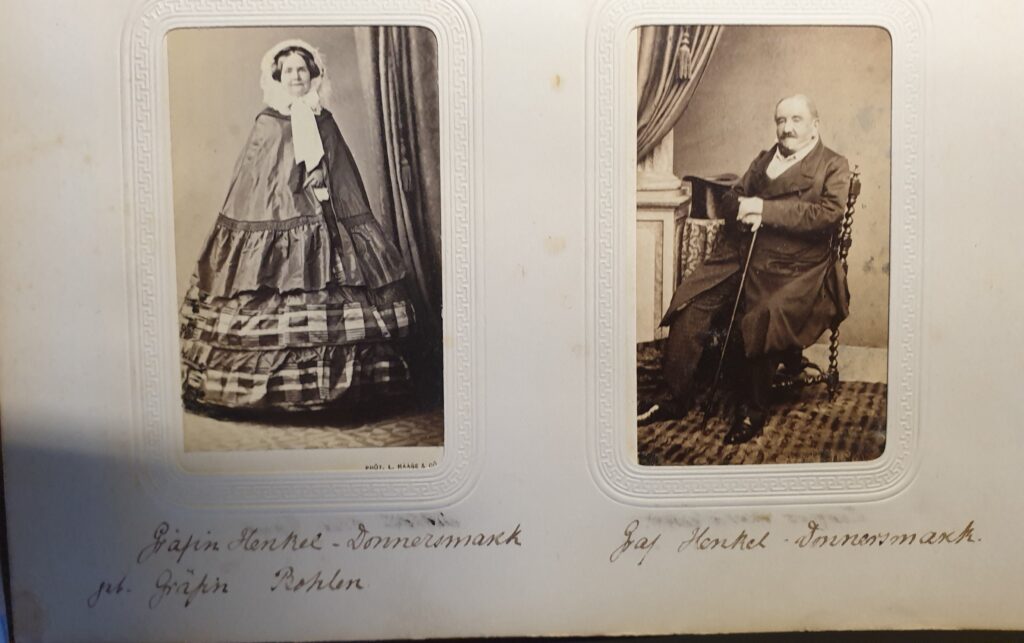 PHOT. L. HAASE & Co
Gräfin Henkel - Donnersmarkk
geb. Gräfin Bohlen
Graf Henkel - Donnersmarkk.